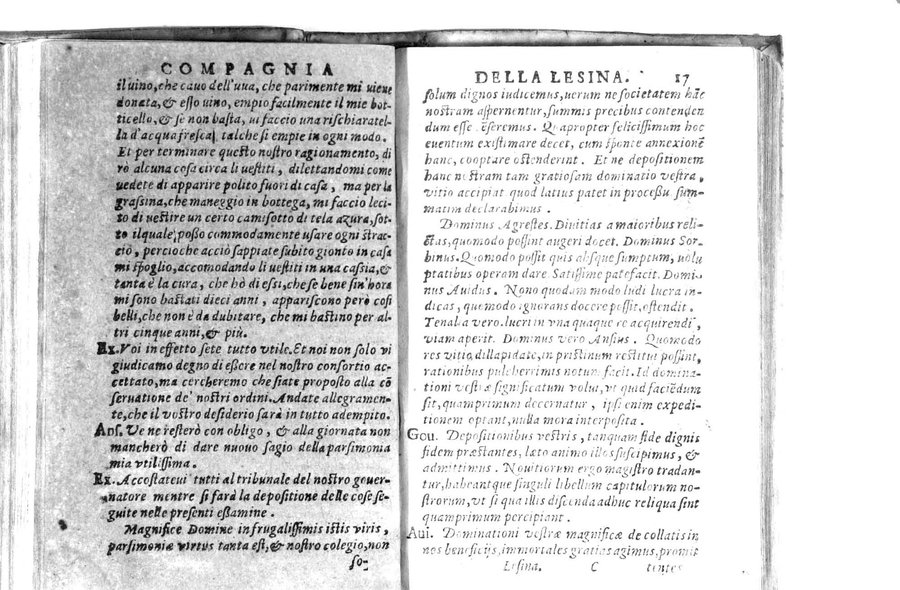 COMPAGNIA
il uino, che cauo dell'uua, che parimente mi uiene
donata, & esso uino, empio facilmente il mie bot-
ticello, & se non basta, ui faccio una rischiaratel-
la d'acqua fresca, talche si empie in ogni modo.
Et per terminare questo nostro ragionamento, di
rò alcuna cosa circa li uestiti, dilettandomi come
uedete di apparire polito fuori di casa, ma per la
grassina, che maneggio in bottega, mi faccio leci-
to di uestire un certo camisotto di tela azura, sot-
to il quale, posso commodamente usare ogni strac-
ciò, percioche acciò sappiate subito gionto in casa
mi spoglio, accomodando li uestiti in una cassia, &
tanta è la cura, che hò di essi, che se bene sin'hora
mi sono bastati dieci anni, appariscono però cosi
belli, che non è da dubitare, che mi bastino per al-
tri cinque anni, & più.
Ex. Voi in effetto sete tutto vtile. Et noi non solo vi
giudicamo degno di essere nel nostro consortio ac-
cettato, ma cercheremo che siate proposto alla cō
seruatione de' nostri ordini. Andate allegramen-
te, che il vostro desiderio sarà in tutto adempito.
Ans. Ve ne resterò con obligo, & alla giornata non
mancherò di dare nuouo sagio della parsimonia
mia vtilissima.
Ex. Accostateui tutti al tribunale del nostro gouer-
natore mentre si farà la depositione delle cose se-
guite nelle presenti essamine.
Magnifice Domine in frugalissimis istis viris,
parsimoniæ virtus tanta est, & nostro colegio, non
so-
DELLA LESINA. 17
solum dignos iudicemus, uerum ne societatem hāc
nostram aspernentur, summis precibus contenden
dum esse cēseremus. Quapropter felicissimum hoc
euentum existimare decet, cum sponte annexionē
hanc, cooptare ostenderint. Et ne depositionem
hanc nostram tam gratiosam dominatio vestra,
vitio accipiat quod latius patet in processu sum-
matim declarabimus.
Dominus Agrestes. Diuitias a maioribus reli-
ctas, quomodo possint augeri docet. Dominus Sor-
binus. Quomodo possit quis absque sumptum, uolu
ptatibus operam dare Satissime patefacit. Domi-
nus Auidus. Nono quodam modo ludi lucra in-
dicas, quomodo ignorans docere possit, ostendit.
Tenalia vero. lucri in vna quaque re acquirendi,
viam aperit. Dominus vero Ansius. Quomodo
res vitio, dillapidate, in pristinum restitui possint,
rationibus pulcherrimis notum facit. Id domina-
tioni vestræ significatum volui, vt quid faciēdum
sit, quamprimum decernatur, ipsi enim expedi-
tionem optant, nulla mora interposita.
Gou. Depositionibus vestris, tanquam fide dignis
fidem præstantes, læto animo illos suscipimus, &
admittimus. Nouitiorum ergo magistro tradan-
tur, habeantque singuli libellum capitulorum no-
strorum, vt si qua illis discenda adhuc reliqua sint
quamprimum percipiant.
Aui. Dominationi vestræ magnificæ de collatis in
nos beneficijs, immortales gratias agimus, promit
Lesina. C tentes